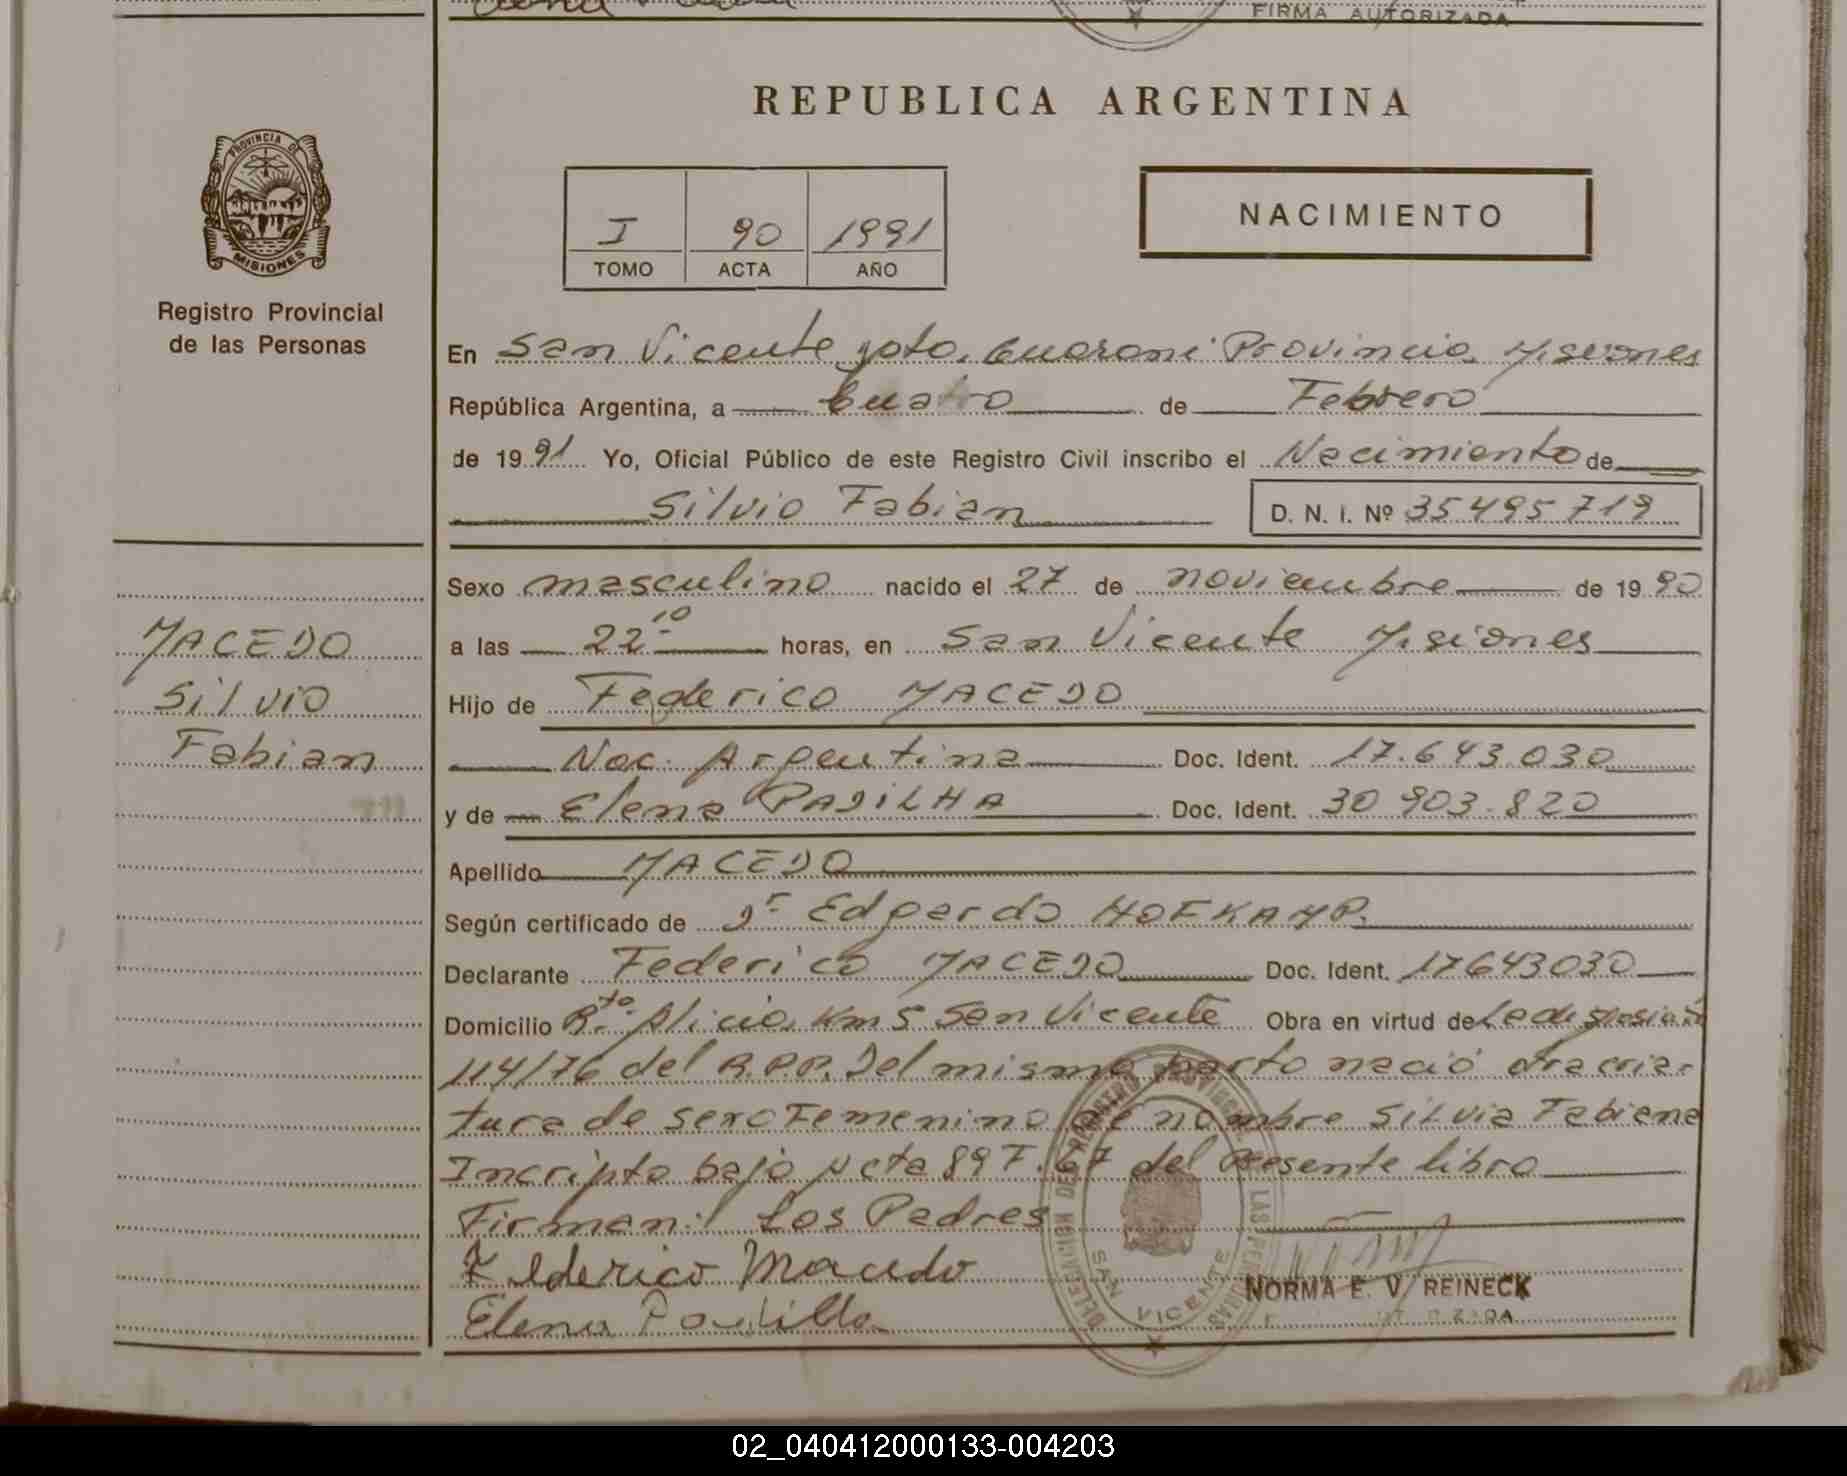 FIRMA AUTORIZADA
REPUBLICA ARGENTINA
PROVINCIA DE
MISIONES
Registro Provincial
de las Personas
I 90 1991
TOMO ACTA AÑO
NACIMIENTO
En San Vicente Dpto. Guarani Provincia Misiones
República Argentina, a Cuatro de Febrero
de 1991 Yo, Oficial Público de este Registro Civil inscribo el Nacimiento de
Silvio Fabian D. N. I. Nº 35495719
MACEDO
Silvio
Fabian
Sexo masculino nacido el 27 de noviembre de 1990
a las 22 10 horas, en San Vicente Misiones
Hijo de Federico MACEDO
Nac. Argentina Doc. Ident. 17.643.030
y de Elena PADILHA Doc. Ident. 30 903.820
Apellido MACEDO
Según certificado de Dr Edgardo HOFKAMP.
Declarante Federico MACEDO Doc. Ident. 17643030
Domicilio Rto. Alicia Km 5 San Vicente Obra en virtud de
114/76 del R.P.P. Del mismo parto nació otra cria-
tura de sexo Femenino de nombre Silvia Fabiana
Incripto bajo Acta 89 F. 67 del Presente libro
Firman: Los Padres
Federico Macedo
Elena Padilla
DELEGACION DEL REGISTRO PROVINCIAL DE LAS PERSONAS
SAN VICENTE
NORMA E. V. REINECK
02_040412000133-004203